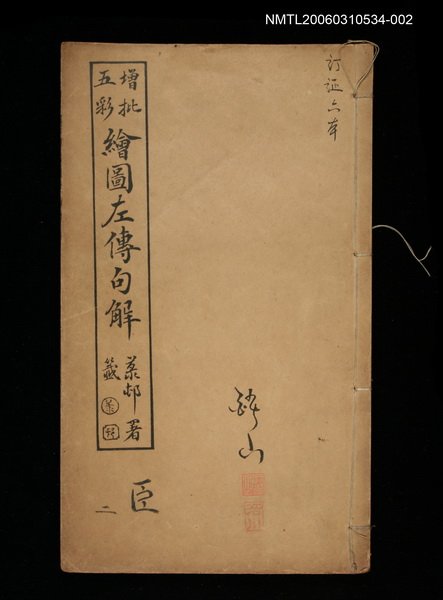 NMTL20060310534-002
訂証六本
增批
五彩
繪圖左傳句解
菉邨署
籤
山
臣
二